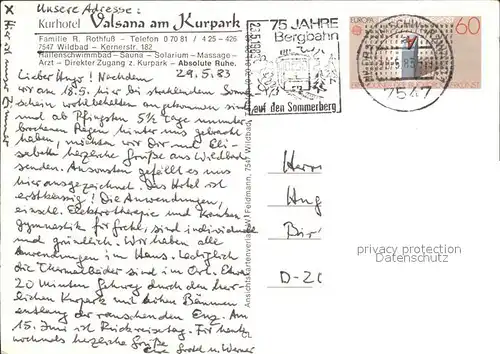 Unsere Adresse:
Kurhotel Valsana am Kurpark
Familie R. Rothfuß - Telefon 0 70 81 / 4 25 - 426
7547 Wildbad - Kernerstr. 182
Hallenschwimmbad - Sauna - Solarium - Massage-
Arzt - Direkter Zugang z. Kurpark - Absolute Ruhe.
x Hier ist unser Zimmer
29.5.83
Lieber Hugo! Nachdem
wir am 18.5. hier bei strahlendem Sonnen
schein wohlbehalten angekommen sind
und ab Pfingsten 5½ Tage ununter
brochenen Regen hinter uns gebracht
haben, möchten wir Dir und Eli-
sabeth herzliche Grüße aus Wildbad
senden. Ansonsten gefällt es uns
hier ausgezeichnet. Das Hotel ist
erstklassig! Die Anwendungen,
einschl. Elektrotherapie und Kranken
gymnastik für Gretel, sind individuell
und gründlich. Wir haben alle
Anwendungen im Haus. Lediglich
die Thermalbäder sind im Ort. Etwa
20 Minuten Gehweg durch den herr-
lichen Kurpark mit hohen Bäumen
entlang der rauschenden Enz. Am
15. Juni ist Rückreisetag. Für heute
nochmals herzliche Grüße
Eure Gretel u. Werner
Ansichtskartenverlag W. Feldmann, 7547 Wildbad
75 JAHRE
Bergbahn
auf den Sommerberg
EUROPA
60
7547
Herrn
Hug
Bir
D-20
privacy protection
oldthing.de